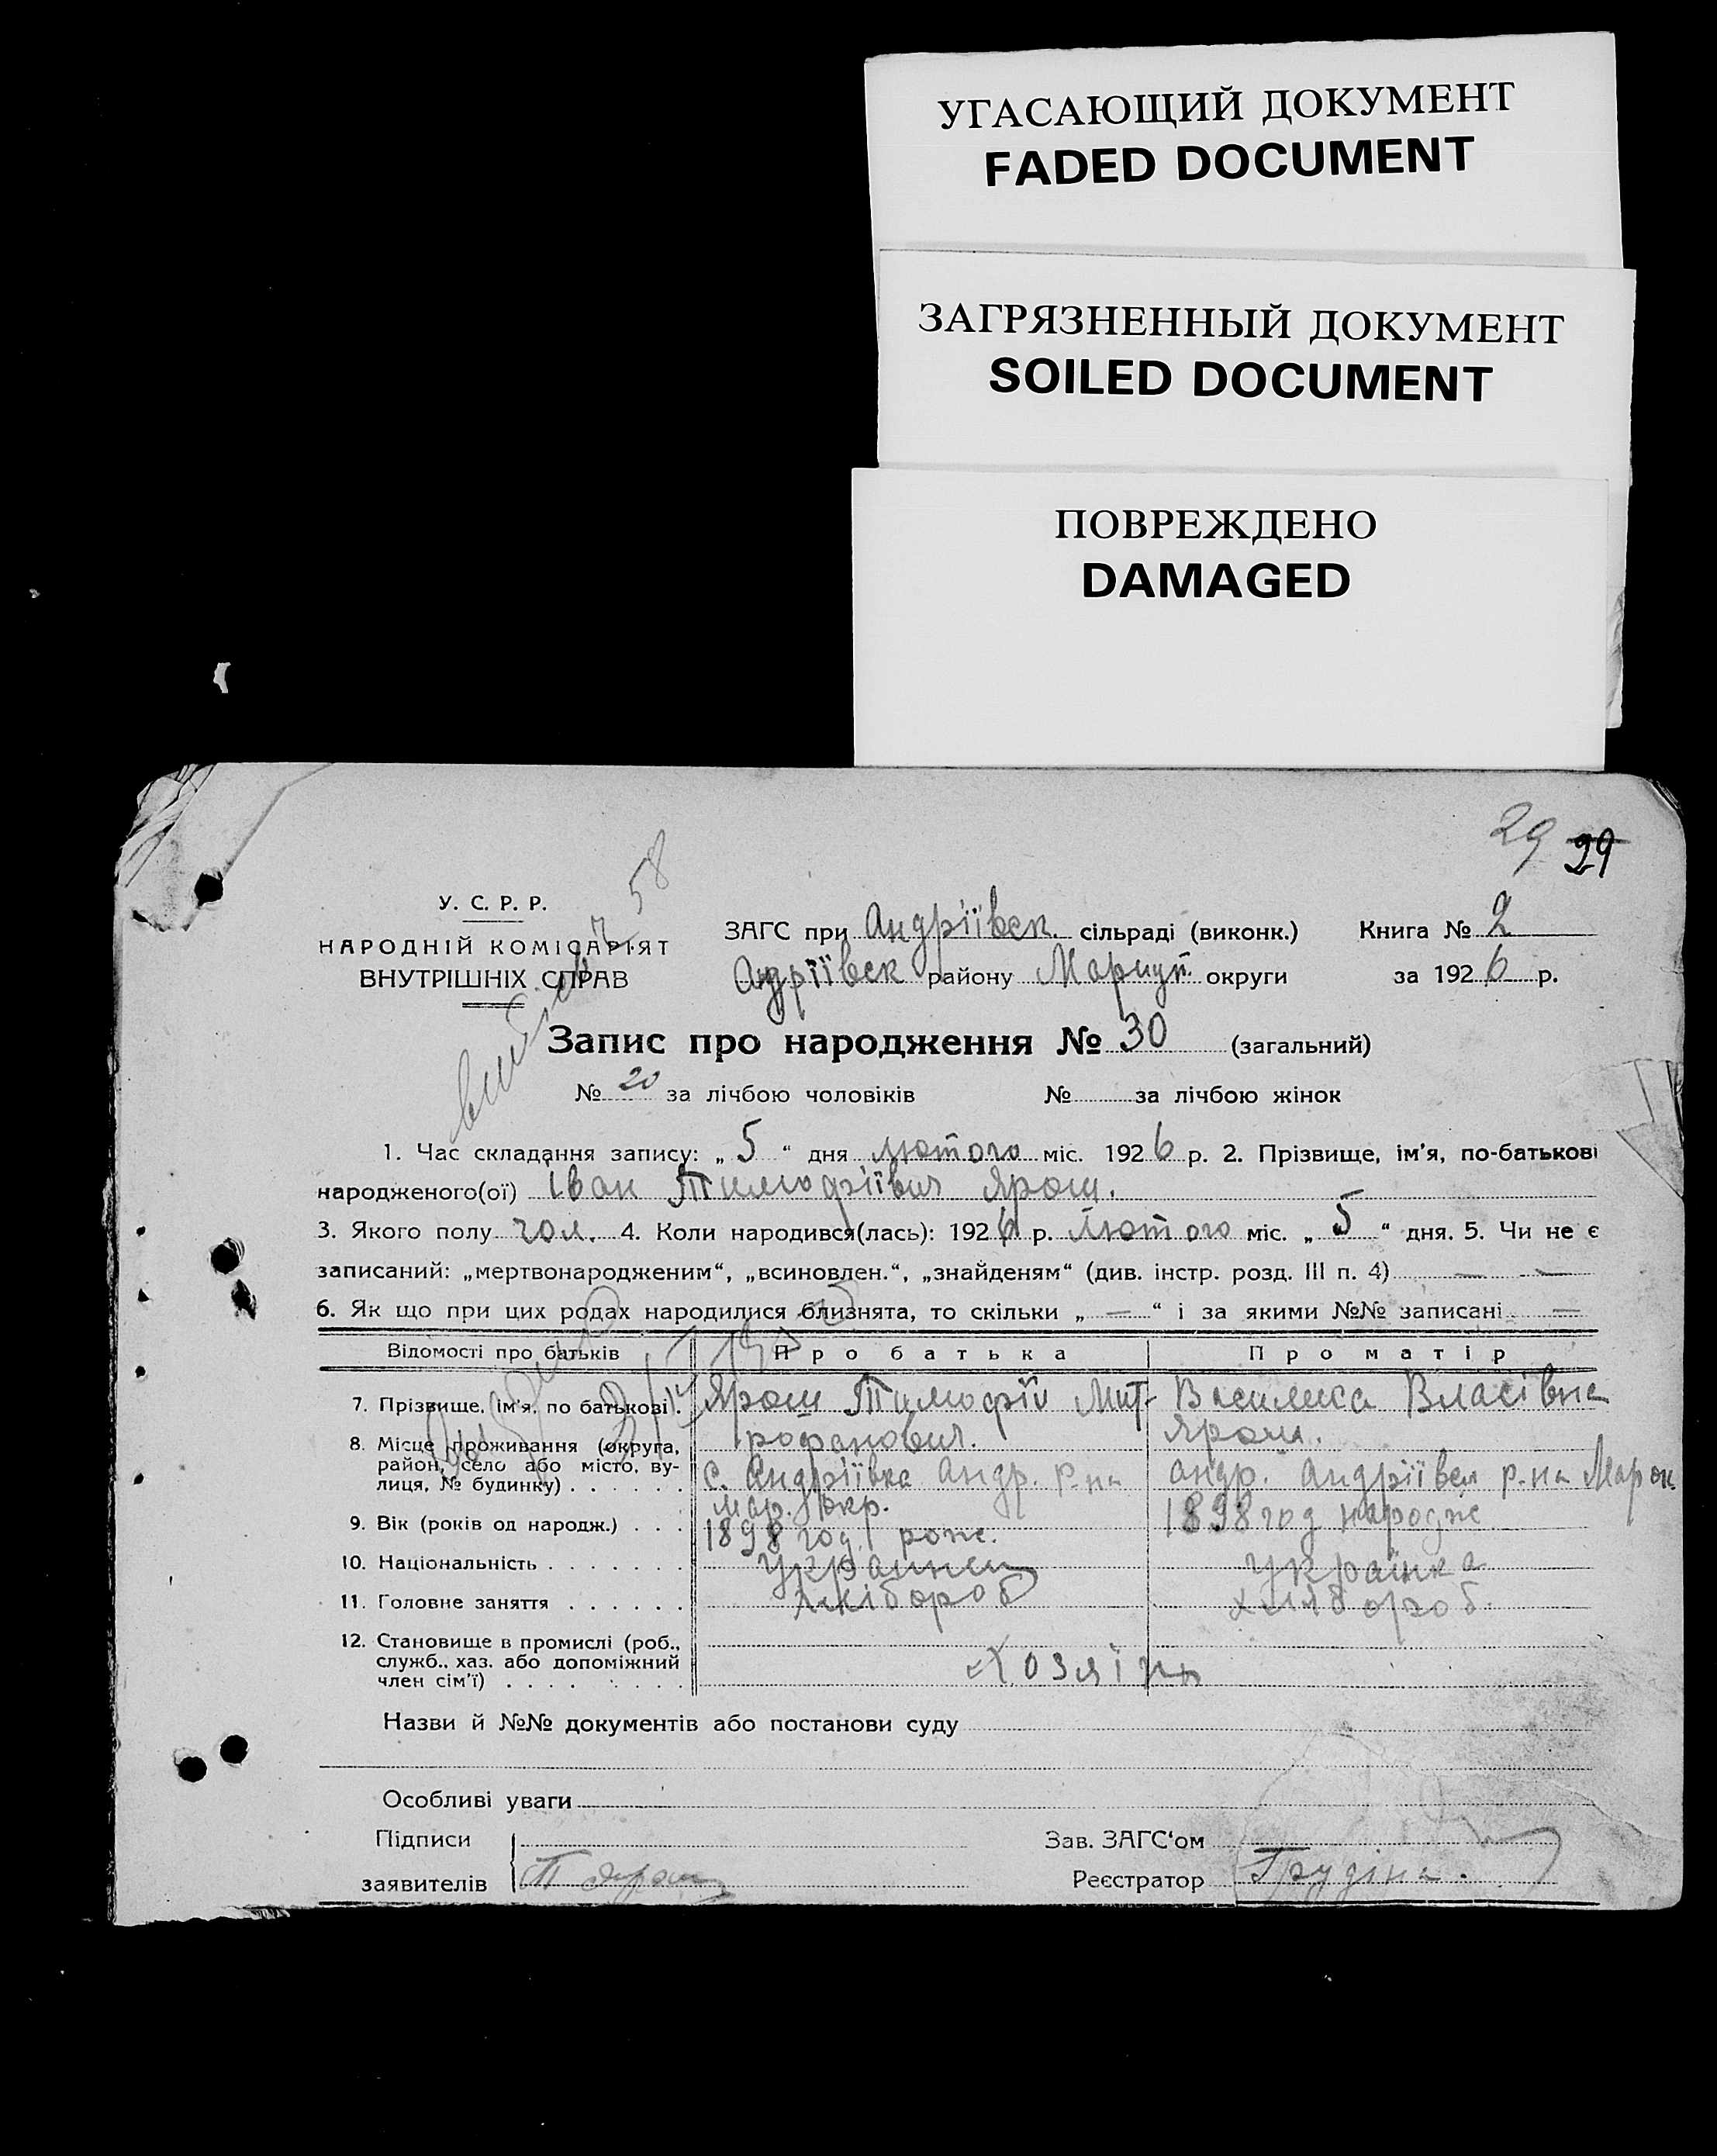 УГАСАЮЩИЙ ДОКУМЕНТ
FADED DOCUMENT
ЗАГРЯЗНЕННЫЙ ДОКУМЕНТ
SOILED DOCUMENT
ПОВРЕЖДЕНО
DAMAGED
29 29
58
У. С. Р. Р.
НАРОДНІЙ КОМІСАРІЯТ
ВНУТРІШНІХ СПРАВ
ЗАГС при Андріївск. сільраді (виконк.) Книга № 2
Адріївск району Маріуп. округи за 1926 р.
Запис про народження № 30 (загальний)
№ 20 за лічбою чоловіків № за лічбою жінок
1. Час складання запису: „ 5 “ дня лютого міс. 1926 р. 2. Прізвище, ім'я, по-батькові
народженого(ої) Іван Тимофіївич Ярош.
3. Якого полу чол. 4. Коли народився(лась): 1926 р. Лютого міс. „ 5 “ дня. 5. Чи не є
записаний: „мертвонародженим“, „всиновлен.“, „знайденям“ (див. інстр. розд. III п. 4) — —
6. Як що при цих родах народилися близнята, то скільки „ — “ і за якими №№ записані —
Відомості про батьків Про батька Про матір
7. Прізвище, ім'я, по батькові. Ярош Тимофій Мит- Василиса Власівна
рофанович. Ярош.
8. Місце проживання (округа,
район, село або місто, ву-
лиця, № будинку) . . . . . . с. Андріївка Андр. р-на Андр. Андріївск р-на Мар ок
Мар. окр.
9. Вік (років од народж.) . . . 1898 год. рож. 1898 год народж.
10. Національність . . . . . . . Украинец Українка
11. Головне заняття . . . . . . хлібороб хлібороб.
12. Становище в промислі (роб.,
служб., хаз. або допоміжний
член сім'ї) . . . . . . . . . Хозяїн
Назви й №№ документів або постанови суду
Особливі уваги
Підписи Зав. ЗАГС'ом
заявителів Т Ярош Реєстратор Грудіна.